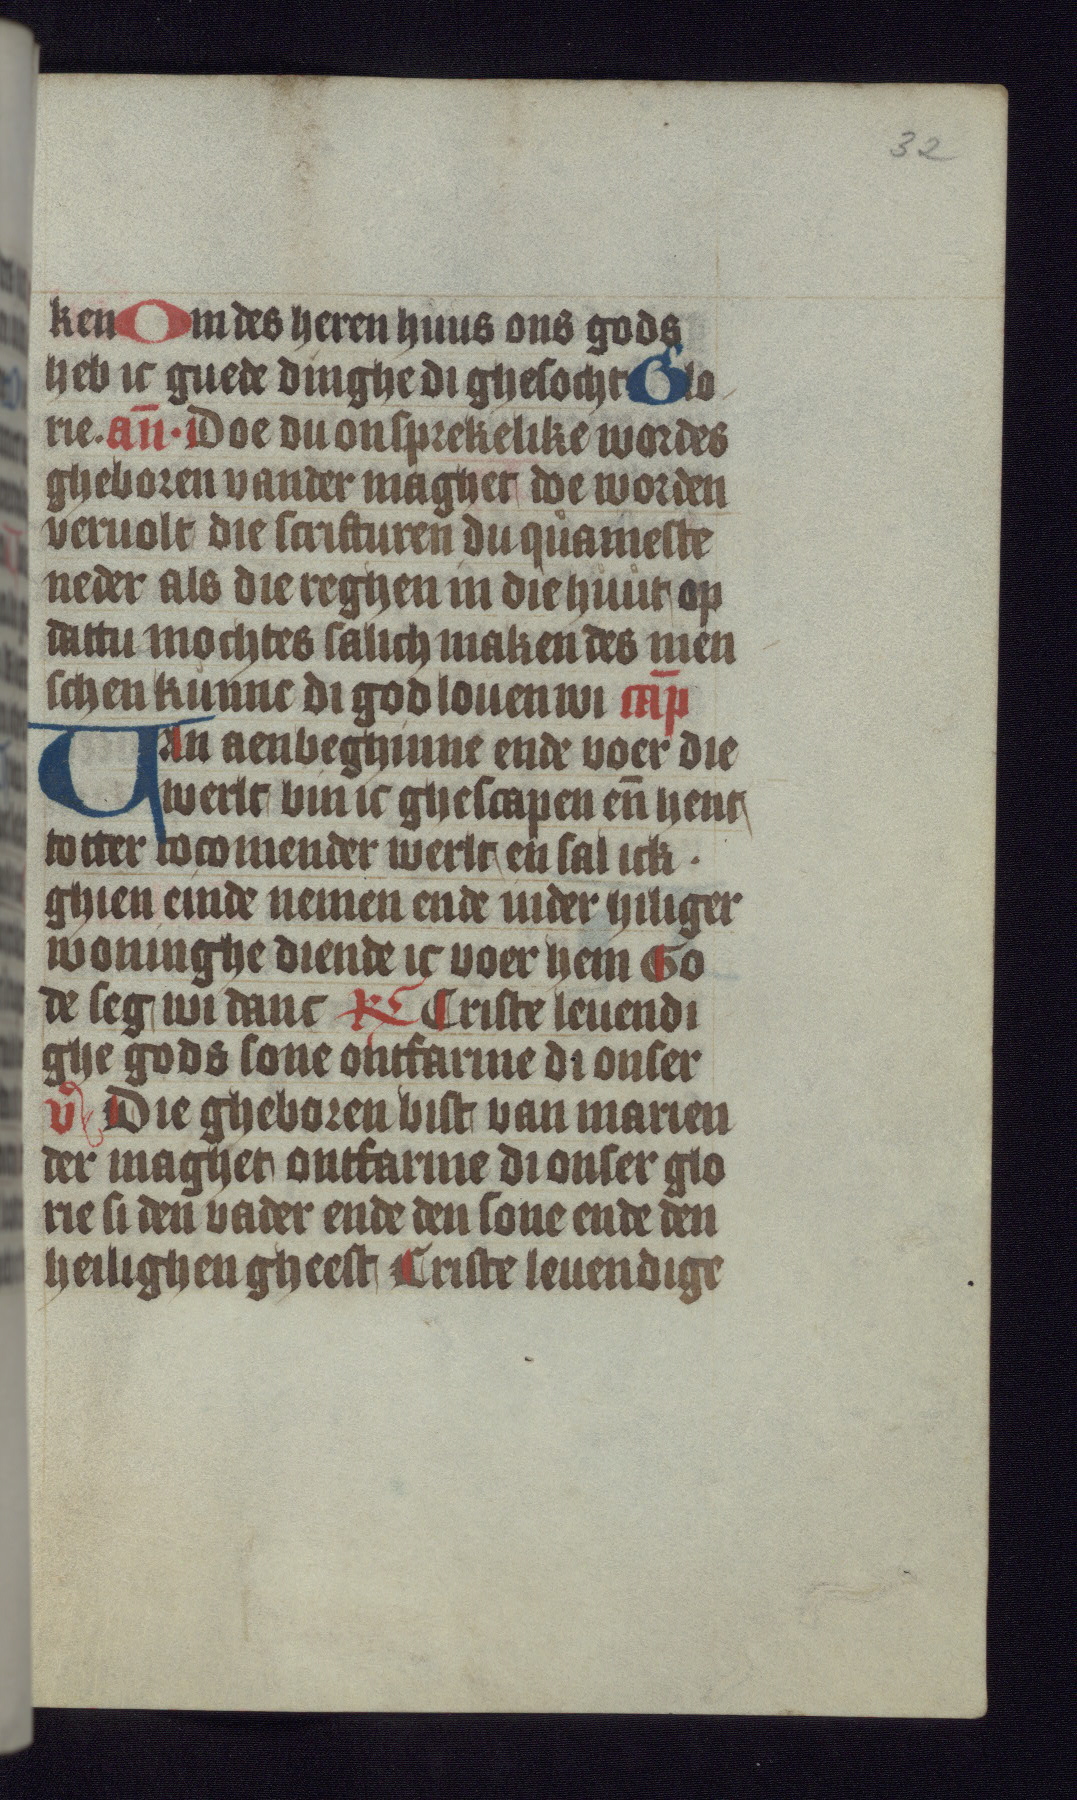 32
ken Om des heren huus ons gods
heb ic guede dinghe di ghesocht Glo
rie. an̄. Doe du onsprekelike wordes
gheboren vander maghet doe worden
veruolt die scrifturen du quameste
neder als die reghen in die huut op
dattu mochtes salich maken des men
schen kunne di god louen wi cap̄
Uan aenbeghinne ende voer die
werlt bin ic ghescapen en̄ hent
totter tocomender werlt en sal ick .
ghien einde nemen ende inder hiliger
woninghe diende ic voer hem Go
de seg wi danc R Criste leuendi
ghe gods sone ontfarme di onser
v Die gheboren bist van marien
der maghet ontfarme di onser glo
rie si den vader ende den sone ende den
heilighen gheest Criste leuendige